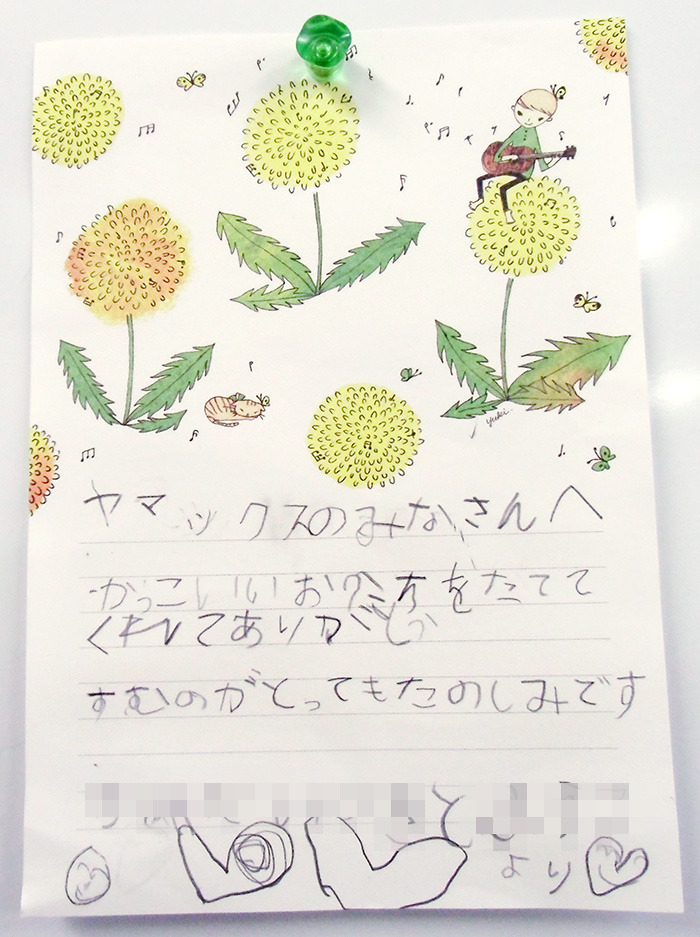 yuki
ヤマックスのみなさんへ
かっこいいおうちをたてて
くれてありがとう
すむのがとってもたのしみです
より